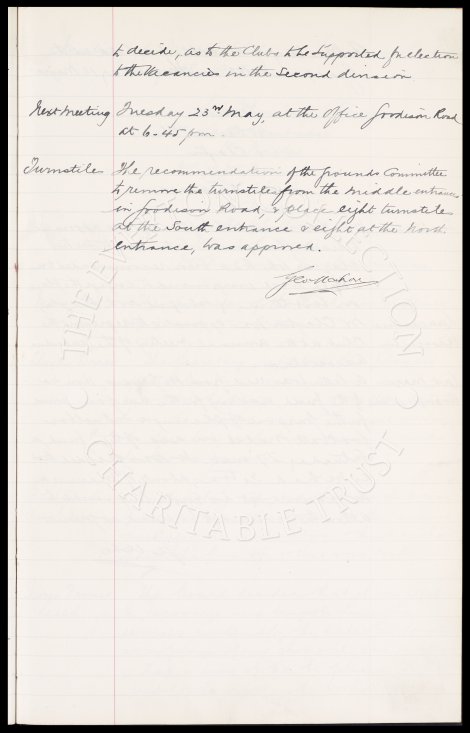 to decide, as to the Clubs to be supported for election
to the Vacancies in the Second division
Next Meeting Tuesday 23rd May, at the Office Goodison Road
at 6.45 pm.
Turnstiles The recommendation of the Grounds Committee
to remove the turnstiles from the middle entrance
in Goodison Road, & place eight turnstiles
at the South entrance & eight at the North
entrance, was approved.
Geo Mahon
THE EVERTON COLLECTION
CHARITABLE TRUST